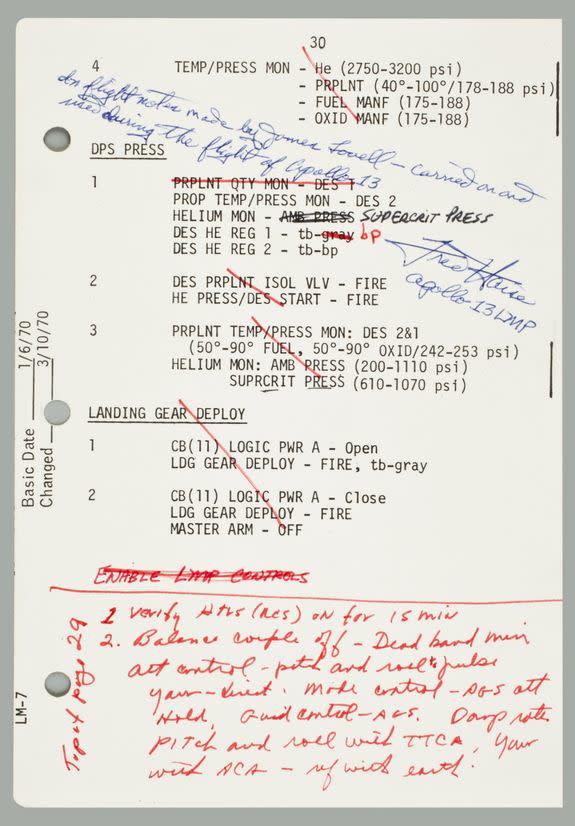 30
4 TEMP/PRESS MON - He (2750-3200 psi)
- PRPLNT (40°-100°/178-188 psi)
- FUEL MANF (175-188)
- OXID MANF (175-188)
In flight notes made by James Lovell - carried on and
used during the flight of Apollo 13
DPS PRESS
1 PRPLNT QTY MON - DES 1
PROP TEMP/PRESS MON - DES 2
HELIUM MON - AMB PRESS SUPERCRIT PRESS
DES HE REG 1 - tb-gray bp
DES HE REG 2 - tb-bp
Fred Haise
Apollo 13 LMP
2 DES PRPLNT ISOL VLV - FIRE
HE PRESS/DES START - FIRE
3 PRPLNT TEMP/PRESS MON: DES 2&1
(50°-90° FUEL, 50°-90° OXID/242-253 psi)
HELIUM MON: AMB PRESS (200-1110 psi)
SUPRCRIT PRESS (610-1070 psi)
LANDING GEAR DEPLOY
1 CB(11) LOGIC PWR A - Open
LDG GEAR DEPLOY - FIRE, tb-gray
2 CB(11) LOGIC PWR A - Close
LDG GEAR DEPLOY - FIRE
MASTER ARM - OFF
Basic Date 1/6/70
Changed 3/10/70
LM-7
ENABLE LMP CONTROLS
1 Verify Htrs (RCS) on for 15 min
2. Balance couple off - Dead band min
att control - pitch and roll to pulse
yaw - direct. Mode control - AGS att
Hold, Guid control - AGS. Damp rates
Pitch and roll with TTCA, Yaw
with ACA - ref with earth.
Top of page 29